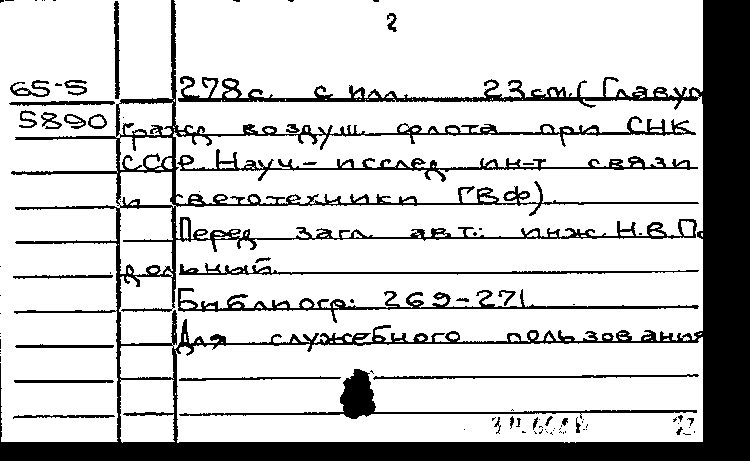 2
65-5 278с. с илл. 23см. (Главуп
5890 гражд. воздуш. флота при СНК
СССР. Науч.-исслед. ин-т связи
и светотехники ГВФ).
Перед загл. авт.: инж. Н.В. По
дольный.
Библиогр: 269-271.
Для служебного пользования